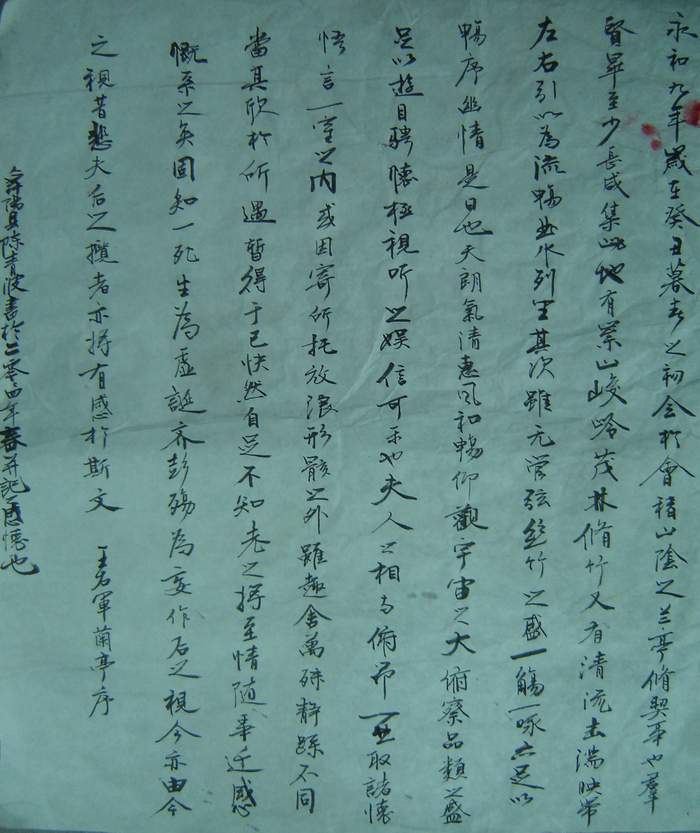 永和九年歲在癸丑暮春之初會於會稽山陰之兰亭脩禊事也羣
賢畢至少長咸集此地有崇山峻岭茂林脩竹又有清流击湍映带
左右引以為流觴曲水列坐其次雖无管弦丝竹之盛一觴一咏亦足以
暢序幽情是日也天朗氣清惠风和暢仰觀宇宙之大俯察品類之盛
足以遊目騁懷極視听之娱信可乐也夫人之相与俯仰一世取諸懷
悟言一室之内或因寄所托放浪形骸之外雖趣舍萬殊静躁不同
當其欣於所遇暫得于己快然自足不知老之将至情随事迁感
慨系之矣固知一死生為虚誕齐彭殤為妄作后之視今亦由今
之視昔悲夫后之攬者亦将有感於斯文 王右軍蘭亭序
陈青波書於二零零四年春并記感懷也